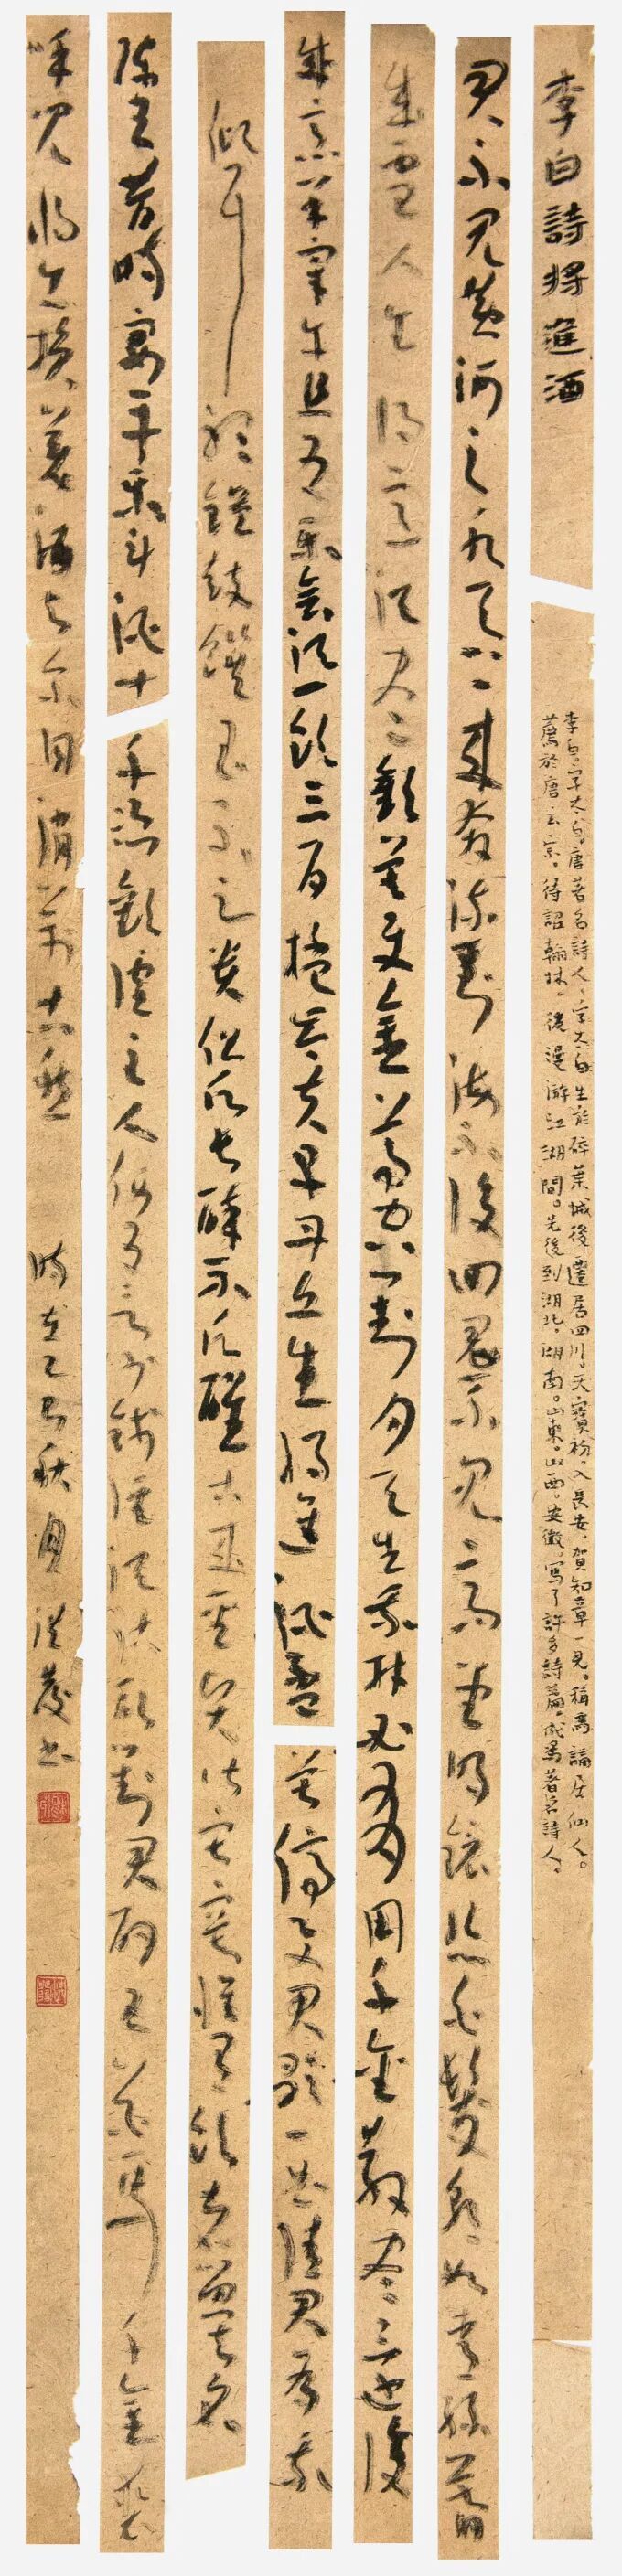 李白詩將進酒
李白字太白唐著名詩人，字太白生於碎葉城後遷居四川。天寶初，入長安，賀知章一見，稱為謫居仙人。
薦於唐玄宗。待詔翰林。後漫游江湖間。先後到湖北。湖南。山東。山西。安徽，寫了許多詩篇。成為著名詩人。
君不見黃河之水天上來奔流到海不復回君不見高堂明鏡悲白髮朝如青絲暮
成雪人生得意須盡歡莫使金尊空對月天生我材必有用千金散盡還復
來烹羊宰牛且為樂會須一飲三百杯岑夫子丹丘生將進酒杯莫停與君歌一曲請君為我
傾耳聽鐘鼓饌玉不足貴但願長醉不願醒古來聖賢皆寂寞惟有飲者留其名
陳王昔時宴平樂斗酒十千恣歡謔主人何為言少錢徑須沽取對君酌五花馬千金裘
呼兒將出換美酒與爾同消萬古愁 時在乙巳秋月